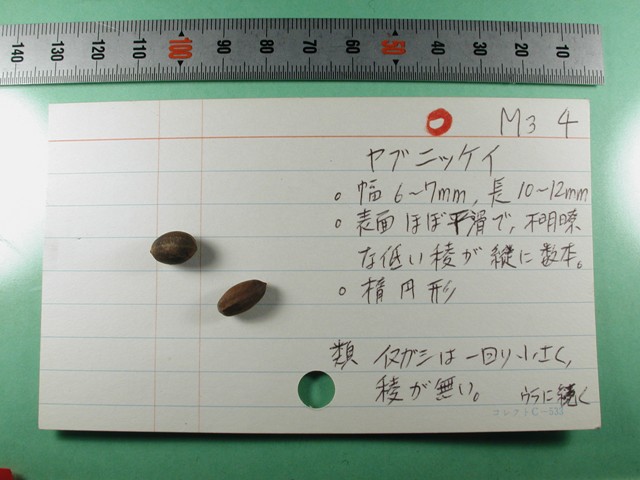 140 130 120 110 100 90 80 70 60 50 40 30 20 10
M3 4
ヤブニッケイ
○ 幅 6〜7mm, 長 10〜12mm
○ 表面 ほぼ平滑で, 不明瞭
な低い稜が 縦に数本。
○ 楕円形
類 イヌガシは 一回り小さく,
稜が無い。 ウラに続く
コレクト C-533